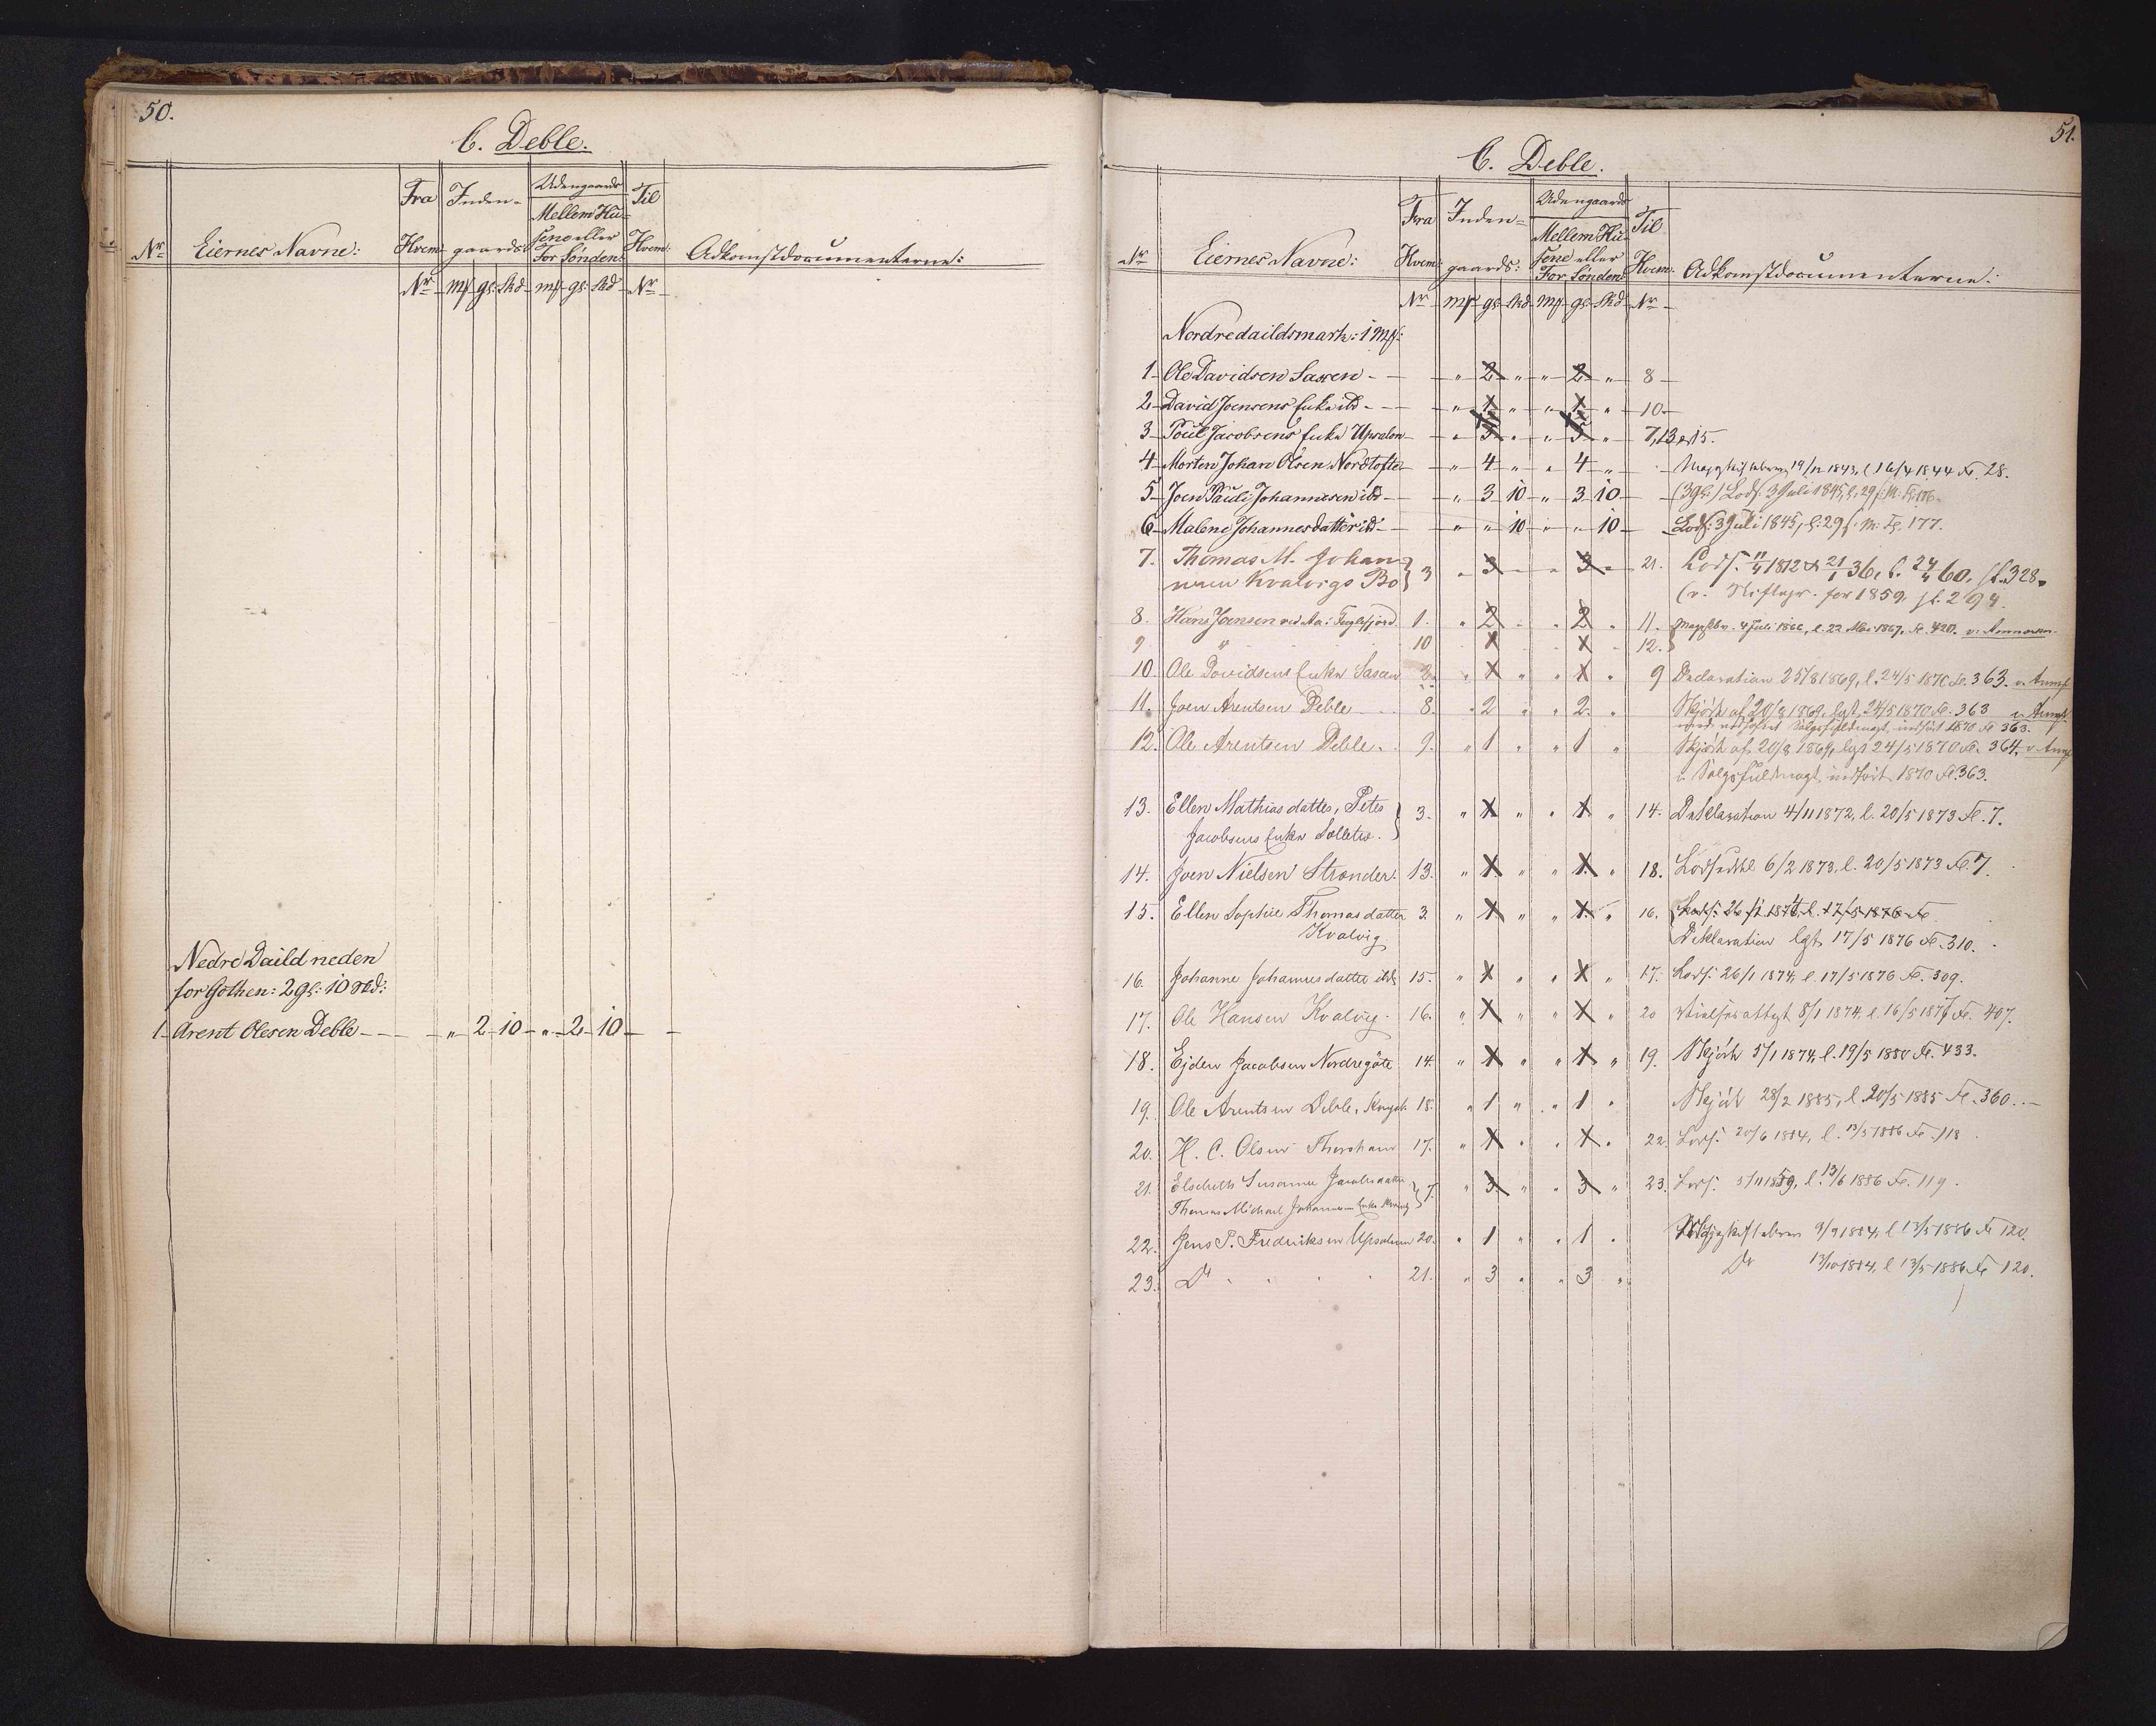 50.
C. Deble.
Nr
Eiernes Navne:
Fra Hvem:
Inden-gaards:
Udengaards
Mellem Hu-sene eller For Sønden:
Til Hvem:
Adkomstdocumenterne:
Nr mk gl. skd mk gl. skd Nr
Nedre Daild neden
for Gøthen: 2 gl: 10 skd:
1 Arent Olesen Deble " 2 10 " 2 10
51.
C. Deble.
Nr
Eiernes Navne:
Fra Hvem:
Inden-gaards:
Udengaards
Mellem Hu-sene eller For Sønden:
Til Hvem:
Adkomstdocumenterne:
Nr mk gl skd mk gl skd Nr
Nordredaildsmark: 1 mk:
1 Ole Davidsen Saxen " 2 " " 2 " 8
2 David Joensens Enke ibd " 1 " " 1 " 10
3 Poul Jacobsens Enke Upsalen " 5 " " 5 " 7, 13 & 15.
4 Morten Johan Olsen Nordtofte " 4 " " 4 " 19/12 1843, l. 16/4 1844 Fo. 28.
5 Joen Pauli Johannesen ibd " 3 10 " 3 10 (3 gl.) Lods. 3 Juli 1845, l. 29 s. M. Fo.
6 Malene Johannesdatter ibd " " 10 " " 10 Lods. 3 Juli 1845, l. 29 s. M. Fo. 177.
7. Thomas M. Johan-
nesen Kvalvigs Bo } 3 " 3 " " 3 " 21. Lods. 1812 & 21/1 36, l. 24/4 60, fol. 328.
(v. for 1859, fol. 294.
8. Hans Joensen ved Aa i Fuglefjord 1. " 2 " " 2 " 11. 4 Juli 1866, l. 22 Mai 1867, Fo. 420.
9 " 10 1 1 12.
10. Ole Davidsens Enke Saxen 2. " 1 " " 1 " 9 Declaration 25/8 1869, l. 24/5 1870 Fo. 363. v. Anm.
11. Joen Arentsen Deble 8. " 2 " " 2 " Skjøde af 20/8 1869, lgst. 24/5 1870 Fo. 363 v. Anm.
Salgsfuldmagt, indført 1870 Fo 363.
12. Ole Arentsen Deble. 9. " 1 " " 1 " Skjøde af 20/8 1869, lgst 24/5 1870 Fo. 364. v. Anm.
v. Salgsfuldmagt, indført 1870 Fo. 363.
13. Ellen Mathiasdatter, Peter
Jacobsens Enke Selletræ. } 3. " 1 " " 1 " 14. Deklaration 4/11 1872, l. 20/5 1873 Fo. 7.
14. Joen Nielsen Strender. 13. " 1 " " 1 " 18. Lodseddel 6/2 1873, l. 20/5 1873 Fo. 7.
15. Ellen Sophie Thomasdatter
Kvalvig 3. " 1 " " 1 " 16. Lods. 26/1 1874, l. 17/5 1876 Fo
Deklaration lgst. 17/5 1876 Fo. 310.
16. Johanne Johannesdatter ibd. 15. " 1 " " 1 " 17. Lods. 26/1 1874, l. 17/5 1876 Fo. 309.
17. Ole Hansen Kvalvig. 16. " 1 " " 1 " 20 Vielsesattest 8/1 1874, l. 16/5 1877 Fo. 407.
18. Ejden Jacobsen Nordregöte 14. " 1 " " 1 " 19. Skjøde 5/1 1874, l. 19/5 1880 Fo. 433.
19. Ole Arentsen Deble, 18. " 1 " " 1 " Skjøde 28/2 1885, l. 20/5 1885 Fo. 360.
20. H. C. Olsen Thorshavn 17. " 1 " " 1 " 22. Lods. 20/6 1884, l. 13/5 1886 Fo. 118
21. Elsebeth Susanne Jacobsdatter
Thomas Michael Johannesen Enke Kvalvig } 7. " 3 " " 3 " 23. Lods. 5/11 1859, l. 13/6 1886 Fo. 119.
22. Jens P. Fredriksen Upsalen 20. " 1 " " 1 " 9/9 1884, l. 13/5 1886 Fo 120.
23. Do 21. " 3 " " 3 " Do 13/10 1884, l 13/5 1886 Fo 120.